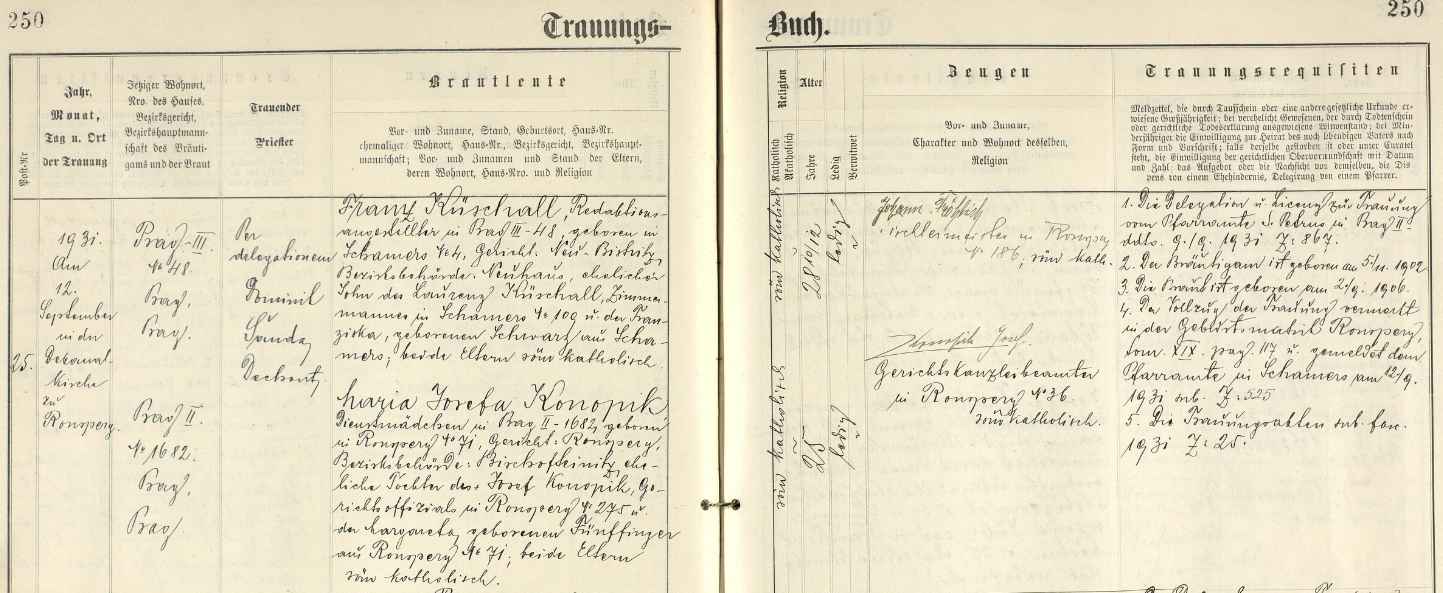 250
Trauungs-
Buch.
250
Post-Nr
Jahr,
Monat,
Tag u. Ort
der Trauung
Jetziger Wohnort,
Nro. des Hauses,
Bezirksgericht,
Bezirkshauptmann-
schaft des Bräuti-
gams und der Braut
Trauender
Priester
Brautleute
Vor- und Zuname, Stand, Geburtsort, Haus-Nr.
ehemaliger Wohnort, Haus-Nr., Bezirksgericht, Bezirkshaupt-
mannschaft; Vor- und Zunamen und Stand der Eltern,
deren Wohnort, Haus-Nro. und Religion
Religion
Katholisch
Akatholisch
Alter
Jahre
Ledig
Verwitwet
Zeugen
Vor- und Zuname,
Charakter und Wohnort desselben,
Religion
Trauungsrequisiten
Meldzettel, die durch Taufschein oder eine andere gesetzliche Urkunde er-
wiesene Großjährigkeit; bei verehelicht Gewesenen, der durch Todtenschein
oder gerichtliche Todeserklärung ausgewiesene Witwenstand; bei Min-
derjährigen die Einwilligung zur Heirat des noch lebendigen Vaters nach
Form und Vorschrift; falls derselbe gestorben ist oder unter Curatel
steht, die Einwilligung der gerichtlichen Obervormundschaft mit Datum
und Zahl; das Aufgebot oder die Nachsicht von demselben, die Dis-
pens von einem Ehehindernis, Delegirung von einem Pfarrer.
25.
1931.
Am
12.
September
in der
Dekanal-
kirche
zu
Ronsperg.
Prag-III
№ 48.
Prag,
Prag.
Prag II.
№ 1682.
Prag,
Prag.
Per
delegationem
Dominik
Dechant.
Franz Küschall, Redaktions-
angestellter in Prag III-48, geboren in
Schamers № 4, Gericht: Neu-Bistritz,
Bezirksbehörde: Neuhaus, ehelicher
Sohn des Laurenz Küschall, Zimmer-
mannes in Schamers № 109 u. der Fran-
ziska, geborenen Schwarz aus Scha-
mers; beide Eltern röm katholisch.
Maria Josefa Konopik,
Dienstmädchen in Prag II-1682, geboren
in Ronsperg № 71, Gericht: Ronsperg,
Bezirksbehörde: Bischofteinitz, ehe-
liche Tochter des Josef Konopik, Ge-
richtsoffizials in Ronsperg № 275 u.
der Margareta, geborenen Fünffinger
aus Ronsperg № 71; beide Eltern
röm katholisch.
röm katholisch
28 10/12
ledig
röm katholisch
25
ledig
Johann Fröhlich
in Ronsperg
№ 186, röm kath.
Konopik Josef.
Gerichtskanzleibeamter
in Ronsperg № 36.
röm katholisch.
1. Die Delegation u. Licenz zur Trauung
vom Pfarramte S. Petrus in Prag II
ddto. 9./9. 1931 Z: 867.
2. Der Bräutigam ist geboren am 5./11. 1902
3. Die Braut ist geboren am 2./9. 1906.
4. Der Vollzug der Trauung vermerkt
in der Geburtsmatrik Ronsperg,
tom. XIX. pag. 117 u. gemeldet dem
Pfarramte in Schamers am 12/9.
1931 sub. Z: 525
5. Die Trauungsakten sub. fasc.
1931 Z: 25.